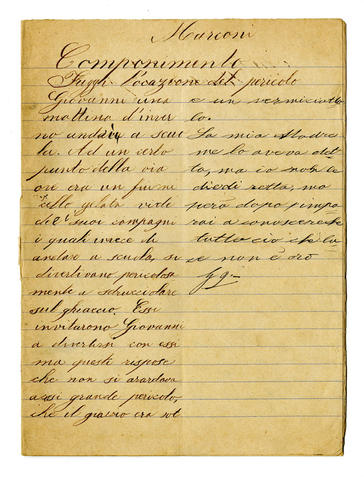 Marconi
Componimento
Fuggi l'occazione del pericolo
Giovanni una
mattina d'inver
no andava a scuo
la. Ad un certo
punto della via
ove era un fiumi
cello gelato vide
dei suoi compagni
i quali invece di
andare a scuola, si
divertivano pericolosa
mente a sdrucciolare
sul ghiaccio. Essi
invitarono Giovanni
a divertirsi con essi
ma questi rispose
che non si azardava
a sì grande pericolo,
che il giaccio era sot
e un
La mia Madre
me lo aveva det
to, ma io non le
diedi retta, ma
però dopo impa
rai a conoscere
tutto ciò che
se non è oro